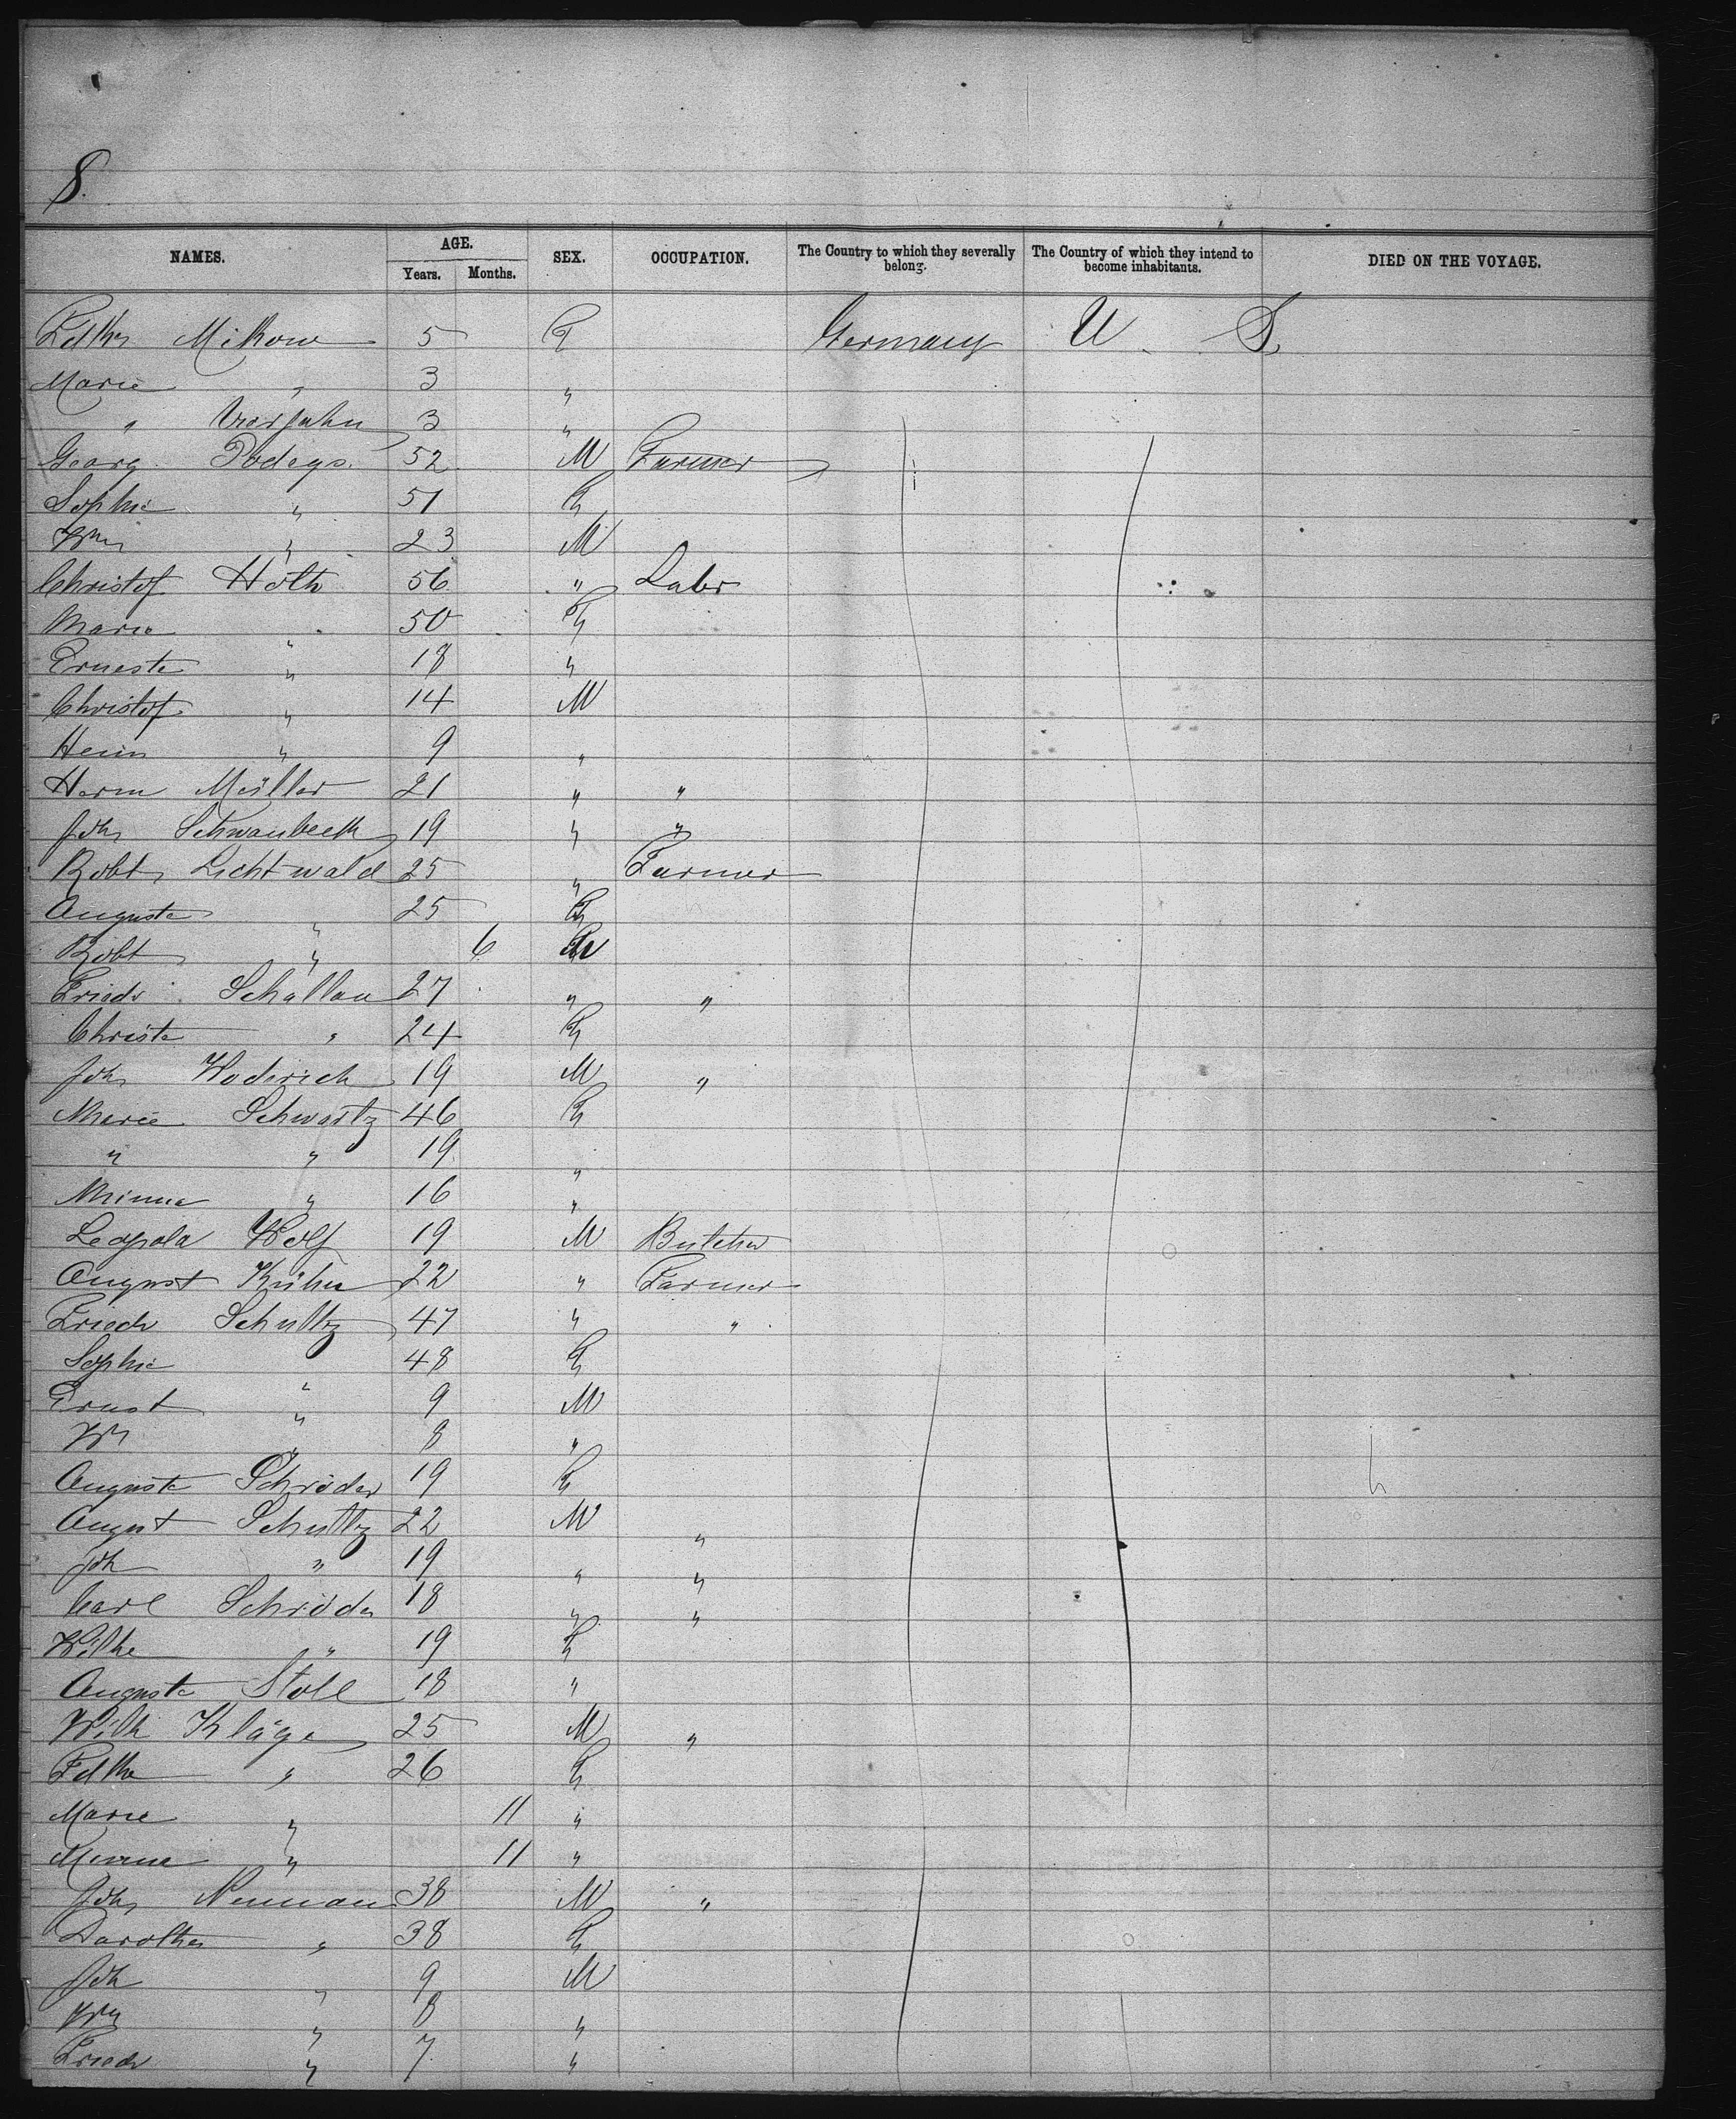 8.
NAMES. AGE. SEX. OCCUPATION. The Country to which they severally belong. The Country of which they intend to become inhabitants. DIED ON THE VOYAGE.
Years. Months.
5 F Germany U. S.
Marie " 3 "
" 3 "
Georg Podeys. 52 M Farmer
Sophie " 51 F
Wm " 23 M
Christof Hoth 56 " Labr
Maria " 50 F
Erneste " 18 "
Christof " 14 M
Hein " 9 "
Herm Müller 21 " "
Joh Schwanbeck 19 " "
Robt Lichtwald 25 " Farmer
Auguste " 25 F
Robt " 6 M
Friedr Schallau 27 " "
Christe " 24 F
Joh Woderich 19 M "
Marie Schwartz 46 F
" " 19 "
Minna " 16 "
Leopold Wolf 19 M Butcher
August Kühn 22 " Farmer
Friedr Schultz 47 " "
Sophie " 48 F
Ernst " 9 M
Wm " 8 "
Auguste Schröder 19 F
August Schultz 22 M "
Joh " 19 " "
Carl Schröder 18 " "
Wilhe " 19 F
Auguste Stoll 18 "
Wilh Kläge 25 M "
" 26 F
Marie " 11 "
Minna " 11 "
Joh Neuman 38 M "
Dorothea " 38 F
Joh " 9 M
Wm " 8 "
Friedr " 7 "